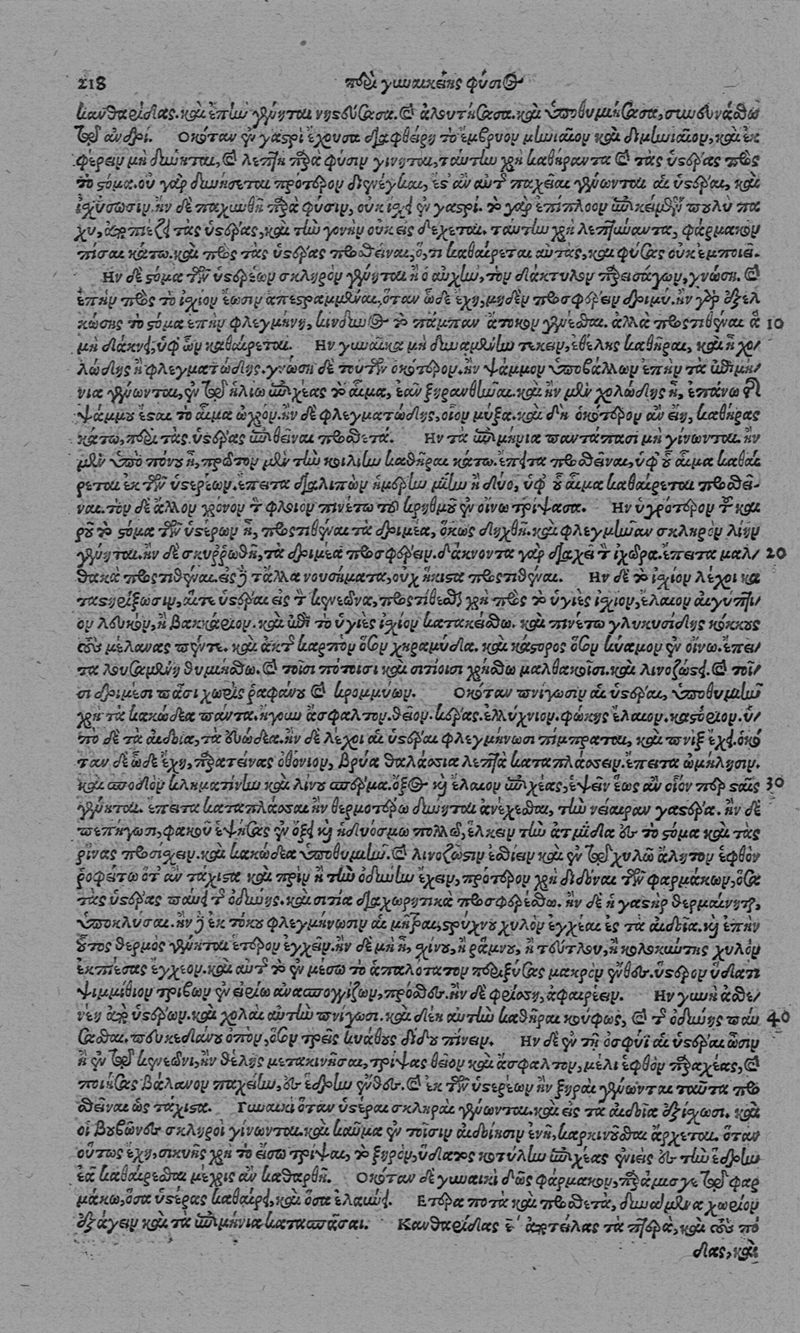 218 περὶ γυναικείης φύσιος
κανθαρίδας. καὶ ἐπὴν γένηται νηστεύσασα. καὶ ἀλουτήσασα. καὶ ὑποθυμιήσασα, συνευνάσθω
τῷ ἀνδρί. Ὁκόταν ἐν γαστρὶ ἔχουσα διαφθείρῃ τὸ ἔμβρυον μηνιαῖον καὶ διμηνιαῖον, καὶ ἐκ
φέρειν μὴ δύνηται, καὶ λεπτὴ παρὰ φύσιν γίνηται, ταύτην χρὴ καθήραντα καὶ τὰς ὑστέρας πρὸς
τὸ στόμα. οὐ γὰρ δυνήσεται πρότερον διενέγκαι, ἔστ' ἂν αὐτῇ παχεῖαι γένωνται αἱ ὑστέραι, καὶ
ἰσχύσωσιν. ἢν δὲ παχυνθῇ παρὰ φύσιν, οὐκ ἴσχει ἐν γαστρί. τὸ γὰρ ἐπίπλοον ἐπικείμενον πουλὺ πα
χὺ, ἀποπιέζει τὰς ὑστέρας, καὶ τὴν γονὴν οὐκ εἰσδέχεται. ταύτην χρὴ λεπτύναντα, φάρμακον
πίσαι κάτω. καὶ πρὸς τὰς ὑστέρας προσθεῖναι, ὅ, τι καθαίρεται αὐτὰς, καὶ φύσας οὐκ ἐμποιέει.
Ἢν δὲ στόμα τῶν ὑστερέων σκληρὸν γένηται ἢ ὁ αὐχὴν, τὸν δάκτυλον παρεισάγων, γνώσῃ. καὶ
ἐπὴν πρὸς τὸ ἰσχίον ἔωσιν ἀπεστραμμέναι, ὅταν ὧδε ἔχῃ, μηδὲν προσφέρειν δριμύ. ἢν γὰρ ἐξελ
κώσῃς τὸ στόμα ἐπὴν φλεγμήνῃ, κίνδυνος τὸ πάμπαν ἄτοκον γενέσθαι. ἀλλὰ προστιθέναι ἃ 10
μὴ δάκνει, ὑφ' ὧν καθαίρεται. Ἢν γυναῖκα μὴ δυναμένην τεκεῖν, ἐθέλῃς καθῆραι, καὶ ᾖ χο/
λώδης ἢ φλεγματώδης. γνώσῃ δὲ τούτων ὁκότερον. ἢν ψάμμον ὑποβάλλων ἐπὴν τὰ ἐπιμή/
νια γένωνται, ἐν τῷ ἡλίῳ ἐπιχέας τὸ αἷμα, ἐᾶν ξηρανθῆναι. καὶ ἢν μὲν χολώδης ᾖ, ἐπάνω τῆς
ψάμμου ἔσται τὸ αἷμα ὠχρόν. ἢν δὲ φλεγματώδης, οἷον μύξα. καὶ δὴ ὁκότερον ἂν εἴη, καθήρας
κάτω, περὶ τὰς ὑστέρας ἐπιθεῖναι προσθετά. Ἢν τὰ ἐπιμήνια παντάπασι μὴ γίνωνται. ἢν
μὲν ὑπὸ πόνου ᾖ, πρῶτον μὲν τὴν κοιλίην καθῆραι κάτω. ἔπειτα προσθεῖναι, ὑφ' οὗ αἷμα καθαί
ρεται ἐκ τῶν ὑστερέων. ἔπειτα διαλιπὼν ἡμέρην μίην ἢ δύο, ὑφ' οὗ αἷμα καθαίρεται προσθεῖ-
ναι. τὸν δὲ ἄλλον χρόνον τὸν φλοιὸν πινέτω τοῦ κρήθμου ἐν οἴνῳ τρίψασα. Ἢν ὑγρότερον τοῦ και
ροῦ τὸ στόμα τῶν ὑστέρων ᾖ, προστιθέναι τὰ δριμέα, ὅκως δηχθῇ. καὶ φλεγμῆναν σκληρὸν λίην
γένηται. ἢν δὲ σκυρρωθῇ, τὰ δριμέα προσφέρειν. δάκνοντα γὰρ διαχέει τὸν ἰχῶρα. ἔπειτα μαλ/ 20
θακὰ προστιθέναι. εἰς δὲ τἆλλα νουσήματα, οὐχ ἥκιστα προστιθέναι. Ἢν δὲ τὸ ἰσχίον λέχρι κα
ταστηρίξωσιν, αἵτε ὑστέραι εἰς τὸν κενεῶνα, προστίθεσθαι χρὴ πρὸς τὸ ὑγιὲς ἰσχίον, ἔλαιον αἰγύπτι/
ον λευκὸν, ἢ βακκάριον. καὶ ἐπὶ τὸ ὑγιὲς ἰσχίον κατακείσθω. καὶ πινέτω γλυκυσίδης κόκκους
τοὺς μέλανας πέντε. καὶ ἀκτῆς καρπὸν ὅσον χηραμύδα. καὶ κάστορος ὅσον κύαμον ἐν οἴνῳ. ἔπει/
τα λουσαμένη θυμιήσθω. καὶ τοῖσι πότοισι καὶ σιτίοισι χρήσθω μαλθακοῖσι. καὶ λινοζώστει. καὶ τοῖ/
σι δριμέσι πᾶσι χωρὶς ῥαφάνου καὶ κρομμύων. Ὁκόταν πνίγωσιν αἱ ὑστέραι, ὑποθυμιῆν
χρὴ τὰ κακώδεα πάντα. ἤγουν ἄσφαλτον. θεῖον. κέρας. ἐλλύχνιον. φώκης ἔλαιον. καστόριον. ὑ/
πὸ δὲ τὰ αἰδοῖα, τὰ εὐώδεα. ἢν δὲ λέχρι αἱ ὑστέραι φλεγμήνωσι πίμπραται, καὶ πνὶξ ἔχει. ὁκό
ταν δὲ ὧδε ἔχῃ, προατείνας ὀθόνιον, βρύα θαλάσσια λεπτὰ καταπλάσσειν. ἔπειτα ὠμήλυσιν.
καὶ σποδὸν κληματίνην καὶ λίνου σπέρμα. ὄξος καὶ ἔλαιον ἐπιχέας, ἑψεῖν ἕως ἂν οἷον περ σταῖς 30
γένηται. ἔπειτα καταπλάσαι ἢν θερμοτέρῳ δύνηται ἀνέχεσθαι, τὴν νείαιραν γαστέρα. ἢν δὲ
πεπήγωσι, φακοῦ ἑψήσας ἐν ὄξει καὶ ἡδυόσμῳ πολλῷ, ἕλκειν τὴν ἀτμίδα ἐς τὸ στόμα καὶ τὰς
ῥῖνας προσίσχειν. καὶ κακώδεα ὑποθυμιῆν. καὶ λινοζῶστιν ἐσθίειν καὶ ἐν τῷ χυλῷ ἄλητον ἑφθὸν
ῥοφεῖτω ὅτ' ἂν τάχιστα καὶ πρὶν ἢ τὴν ὀδύνην ἔχειν, πρότερον χρὴ διδόναι τῶν φαρμάκων, ὅσα
τὰς ὑστέρας παύει τῆς ὀδύνης. καὶ σιτία διαχωρητικὰ προσφερέσθω. ἢν δὲ ἡ γαστὴρ θερμαίνηται,
ὑποκλύσαι. ἢν δὲ ἐκ τόκου φλεγμήνωσιν αἱ μῆτραι, στρύχνου χυλὸν ἐγχέαι ἐς τὰ αἰδοῖα. καὶ ἐπὴν
οὗτος θερμὸς γένηται ἕτερον ἐγχεῖν. ἢν δὲ μὴ ᾖ, σχίνου, ἢ ῥάμνου, ἢ τεύτλου, ἢ κολοκύντης χυλὸν
ἐκπιέσας ἔγχεον. καὶ αὐτῆς τὸ ἐν μέσῳ τὸ ἁπαλότατον περιξύσας μακρὸν ἐνθές. ὕστερον ὕδατι
ψιμμίθιον τρίβων ἐν εἰρίῳ ἀνασπογγίζων, πρόσθες. ἢν δὲ φρίσσῃ, ἀφαιρέειν. Ἢν γυνὴ ἀσθε/
νέῃ ἀπὸ ὑστέρων. καὶ χολαὶ αὐτὴν πνίγωσι. καὶ δέῃ αὐτὴν καθῆραι κούφως, καὶ τῆς ὀδύνης παύ 40
σασθαι. πευκεδάνου ὀπὸν, ὅσον τρεῖς κυάθους δίδου πίνειν. Ἢν δὲ ἐν τῇ ὀσφύϊ αἱ ὑστέραι ὦσιν
ἢ ἐν τῷ κενεῶνι, ἢν θέλῃς μετακινῆσαι, τρίψας θεῖον καὶ ἄσφαλτον, μέλι ἑφθὸν παραχέας, καὶ
ποιήσας βάλανον παχείην, ἐς ἕδρην ἐνθές. καὶ ἐκ τῶν ὑστερέων ἢν ξηραὶ γένωνται ταῦτα προσ
θεῖναι ὡς τάχιστα. Γυναικὶ ὅταν ὑστέραι σκληραὶ γένωνται. καὶ εἰς τὰ αἰδοῖα ἐξίσχωσι. καὶ
οἱ βουβῶνες σκληροὶ γίνωνται. καὶ καῦμα ἐν τοῖσιν αἰδοίοισιν ἐνῇ, καρκινοῦσθαι ἄρχεται. ὅταν
οὕτως ἔχῃ, σικύης χρὴ τὸ εἴσω τρίψαι, τὸ ξηρὸν, ὕδατος κοτύλην ἐπιχέας ἐνιεὶς ἐς τὴν ἕδρην
ἐᾶν καθαίρεσθαι μέχρις ἂν καθαρθῇ. Ὁκόταν δὲ γυναικὶ δῷς φάρμακον, παράμισγε τῷ φαρ
μάκῳ, ὅσα ὑστέρας καθαίρει, καὶ ὅσα ἐλαύνει. Ἕτερα ποτὰ καὶ προσθετὰ, δυνάμενα χωρίον
ἐξάγειν καὶ τὰ ἐπιμήνια κατασπᾶσαι. Κανθαρίδας ε' ἀποτίλας τὰ πτερὰ, καὶ τοὺς πό
δας, καὶ